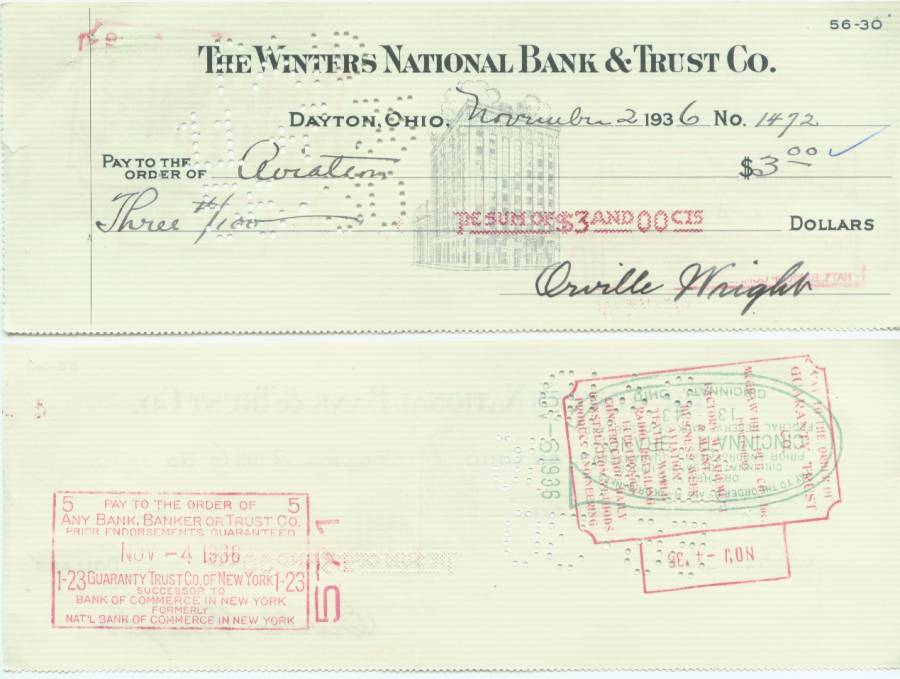 56-30
THE WINTERS NATIONAL BANK & TRUST CO.
DAYTON, OHIO, November 2 1936 No. 1472
PAY TO THE ORDER OF Aviation $3 00
Three #/100 THE SUM OF $3 AND 00 CTS DOLLARS
Orville Wright
5 PAY TO THE ORDER OF 5
ANY BANK, BANKER OR TRUST CO.
PRIOR ENDORSEMENTS GUARANTEED
NOV -4 1936
1-23 GUARANTY TRUST CO. OF NEW YORK 1-23
SUCCESSOR TO
BANK OF COMMERCE IN NEW YORK
FORMERLY
NAT'L BANK OF COMMERCE IN NEW YORK
PAY TO THE ORDER OF
GUARANTY TRUST
BUSINESS WEEK
AVIATION
TEXTILE WORLD
NOV -4 '36
NOV -5 1936
CINCINNATI
OHIO